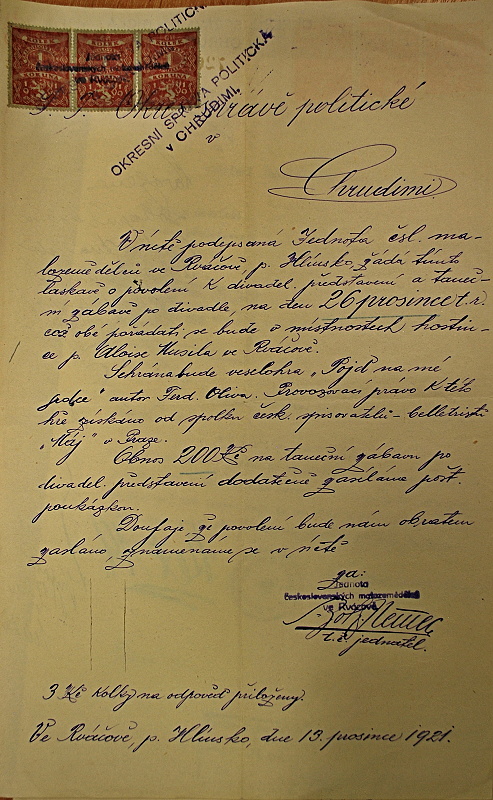 KOLEK KOLEK KOLEK
Jednota
československých malozemědělců
ve Rváčově
KORUNA KORUNA KORUNA
OKRESNÍ SPRÁVA POLITICKÁ
v CHRUDIMI
Okres. správě politické
v
Chrudimi.
Vnitě podepsaná Jednota čsl. ma-
lozemědělců ve Rváčově, p. Hlinsko žádá tímto
laskavě o povolení k divadel. představení a taneč-
ní zábavě po divadle, na den 26 prosince t. r.
což obé pořádati se bude v místnostech hostin-
ce p. Aloise Musila ve Rváčově.
Sehrána bude veselohra „Pojď na mé
srdce" autor Ferd. Oliva. Provozovací právo k této
hře získáno od spolku česk. spisovatelů-belletristů
„Máj" v Praze.
Obnos 200 Kč na taneční zábavu po
divadel. představení dodatečně zasíláme pošt.
poukázkou.
Doufaje že povolení bude nám obratem
zasláno, znamenáme se v úctě
za:
Jednota
československých malozemědělců
ve Rváčově
Jos. Němec
t. č. jednatel.
3 Kč kolky na odpověď přiloženy.
Ve Rváčově, p. Hlinsko, dne 13. prosince 1921.